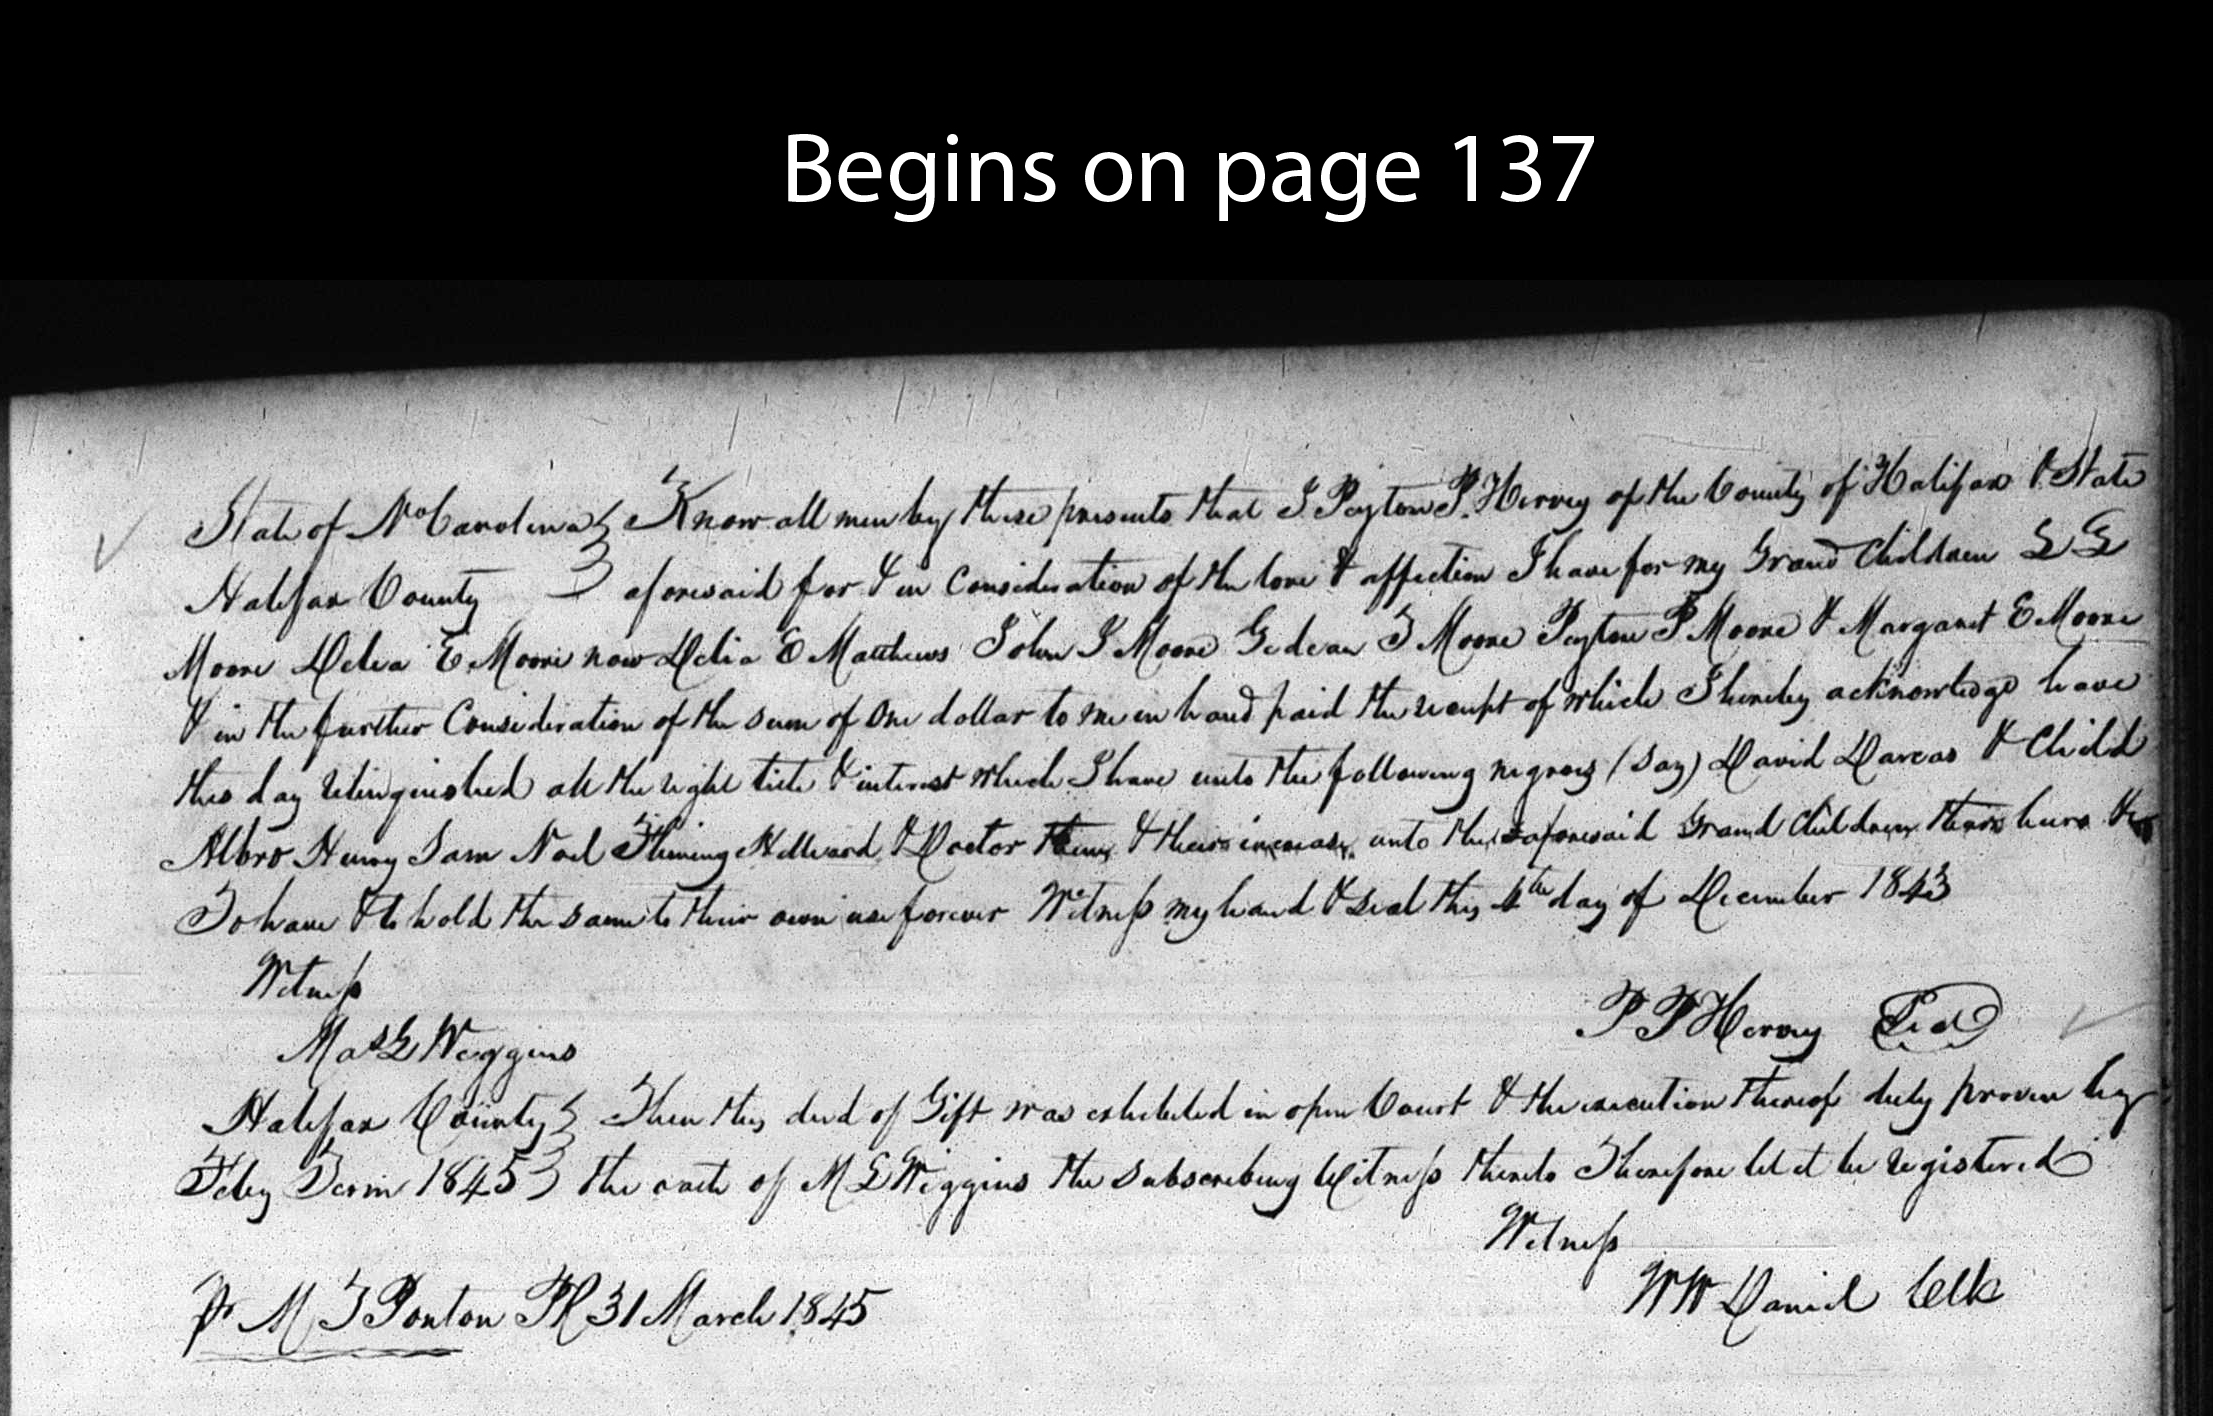 Begins on page 137
State of No Carolina } Know all men by these presents that I Peyton P. Hervey of the County of Halifax & State
Halifax County } aforesaid for & in Consideration of the love & affection I have for my Grand Children
Moore Delia E Moore now Delia E Matthews John Moore Gideon T Moore Peyton P Moore & Margaret E Moore
& in the further Consideration of the sum of One dollar to me in hand paid the receipt of which I hereby acknowledge have
this day relinquished all the right title & interest which I have unto the following negroes (say) David Darcas & Child
Albro Henry Sam Noel Hilliard & Doctor & their increase unto the aforesaid Grand Children their heirs
To have & to hold the same to their own use forever Witness my hand & seal this 4th day of December 1843
Witness
P P Hervey Seal
Mas L Wiggins
Halifax County } Then this deed of Gift was exhibited in open Court & the execution thereof duly proven by
Feby Term 1845 } the oath of M L Wiggins the Subscribing Witness thereto Therefore let it be registered
Witness
W W Daniel Clk
Pr M T Ponton PR 31 March 1845